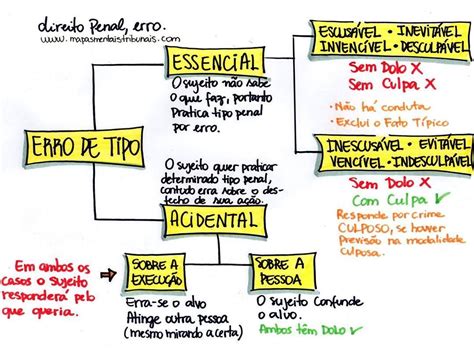 direito Penal, erro.
www.mapasmentaistribunais.com
ERRO DE TIPO
ESSENCIAL
O sujeito não sabe
o que faz, portanto
Pratica tipo penal
por erro.
ESCUSÁVEL • INEVITÁVEL
INVENCÍVEL • DESCULPÁVEL
Sem Dolo X
Sem Culpa X
• Não há conduta
• Exclui o Fato Típico
INESCUSÁVEL • EVITÁVEL
VENCÍVEL • INDESCULPÁVEL
Sem Dolo X
Com Culpa ✓
Responde por crime
CULPOSO, se houver
Previsão na modalidade
culposa.
O sujeito quer praticar
determinado tipo penal,
contudo erra sobre o des-
fecho de sua ação.
ACIDENTAL
Em ambos os
casos o sujeito
responderá pelo
que queria.
SOBRE A
EXECUÇÃO
Erra-se o alvo
Atinge outra pessoa
(mesmo mirando a certa)
SOBRE A
PESSOA
O sujeito confunde
o alvo.
Ambos têm DOLO ✓